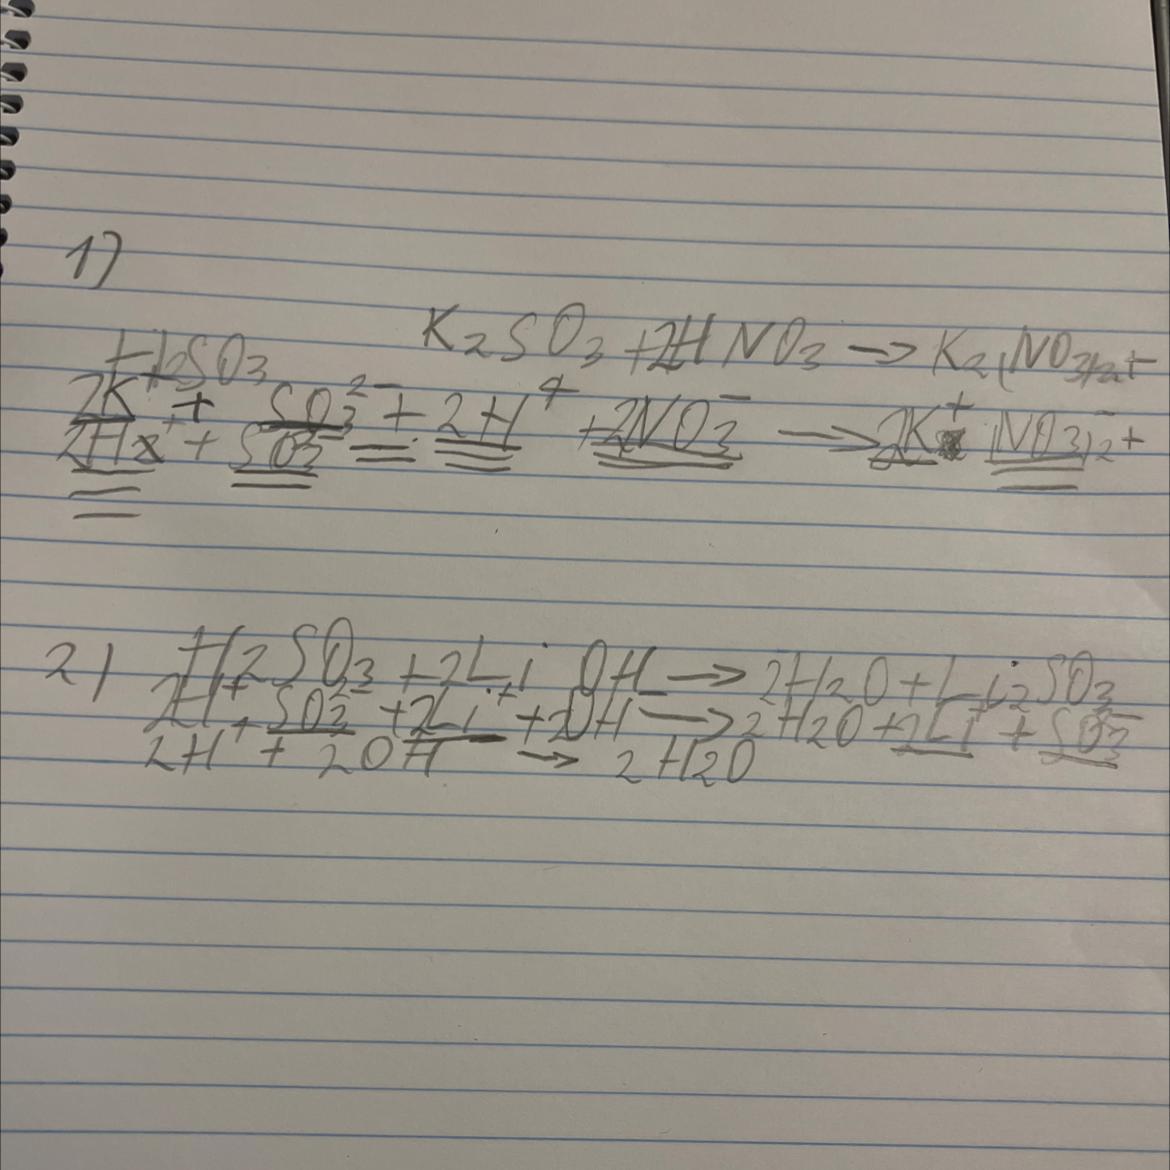 1)
K2SO3 + 2HNO3 → K2(NO3)2 +
H2SO3
2K+ + SO3 2- + 2H+ + 2NO3- → 2K+ (NO3)2- +
2H+ + SO3-
2) H2SO3 + 2LiOH → 2H2O + Li2SO3
2H+ + SO3- + 2Li+ + 2OH- → 2H2O + 2Li+ + SO3-
2H+ + 2OH → 2H2O